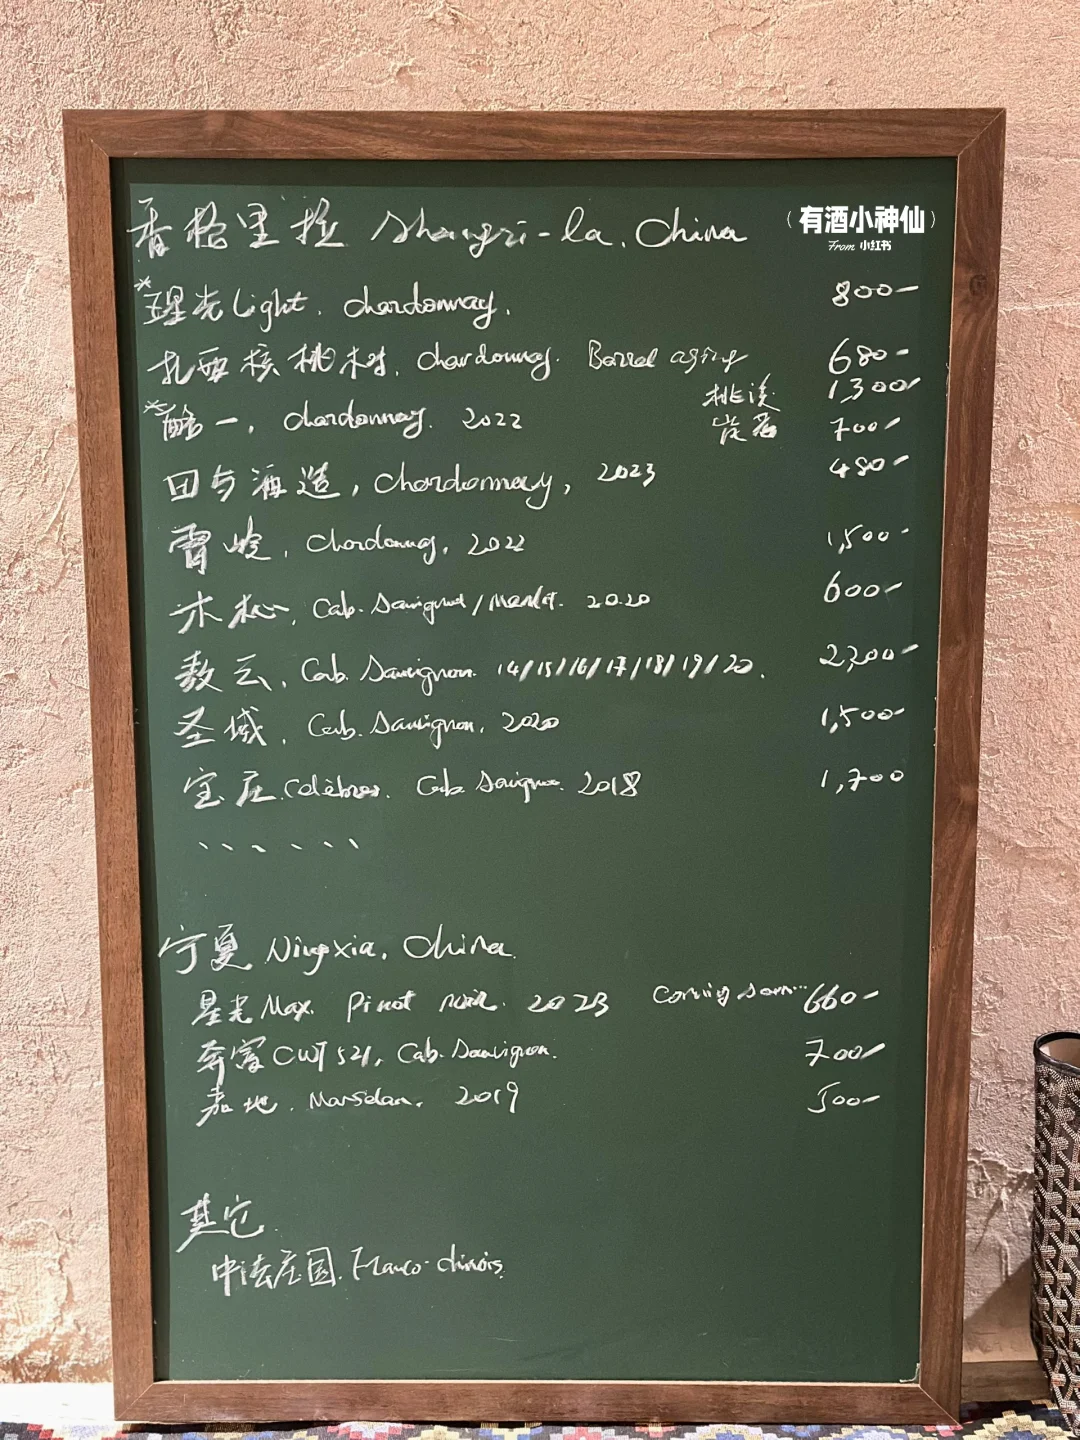 香格里拉 Shangri-la, China
(有酒小神仙)
From 小红书
*星光 Light. Chardonnay. 800-
扎西核桃树. Chardonnay. Barrel aging 680-
桃浅 1,300-
*酩一, Chardonnay. 2022 700-
田与酒造, Chardonnay, 2023 480-
霄岭, Chardonnay, 2022 1,500-
木松, Cab. Sauvignon/Merlot. 2020 600-
敖云, Cab. Sauvignon. 14/15/16/17/18/19/20. 2,200-
圣域, Cab. Sauvignon, 2020 1,500-
宝庄. Célèbres. Cab Sauvignon. 2018 1,700
、、、、、、
宁夏 Ningxia, China.
星光 Max. Pinot noir. 2023 Coming soon... 660-
奔富 CWT 521, Cab. Sauvignon. 700-
嘉地. Marselan. 2019 500-
其它.
中法庄园. Franco-chinois.